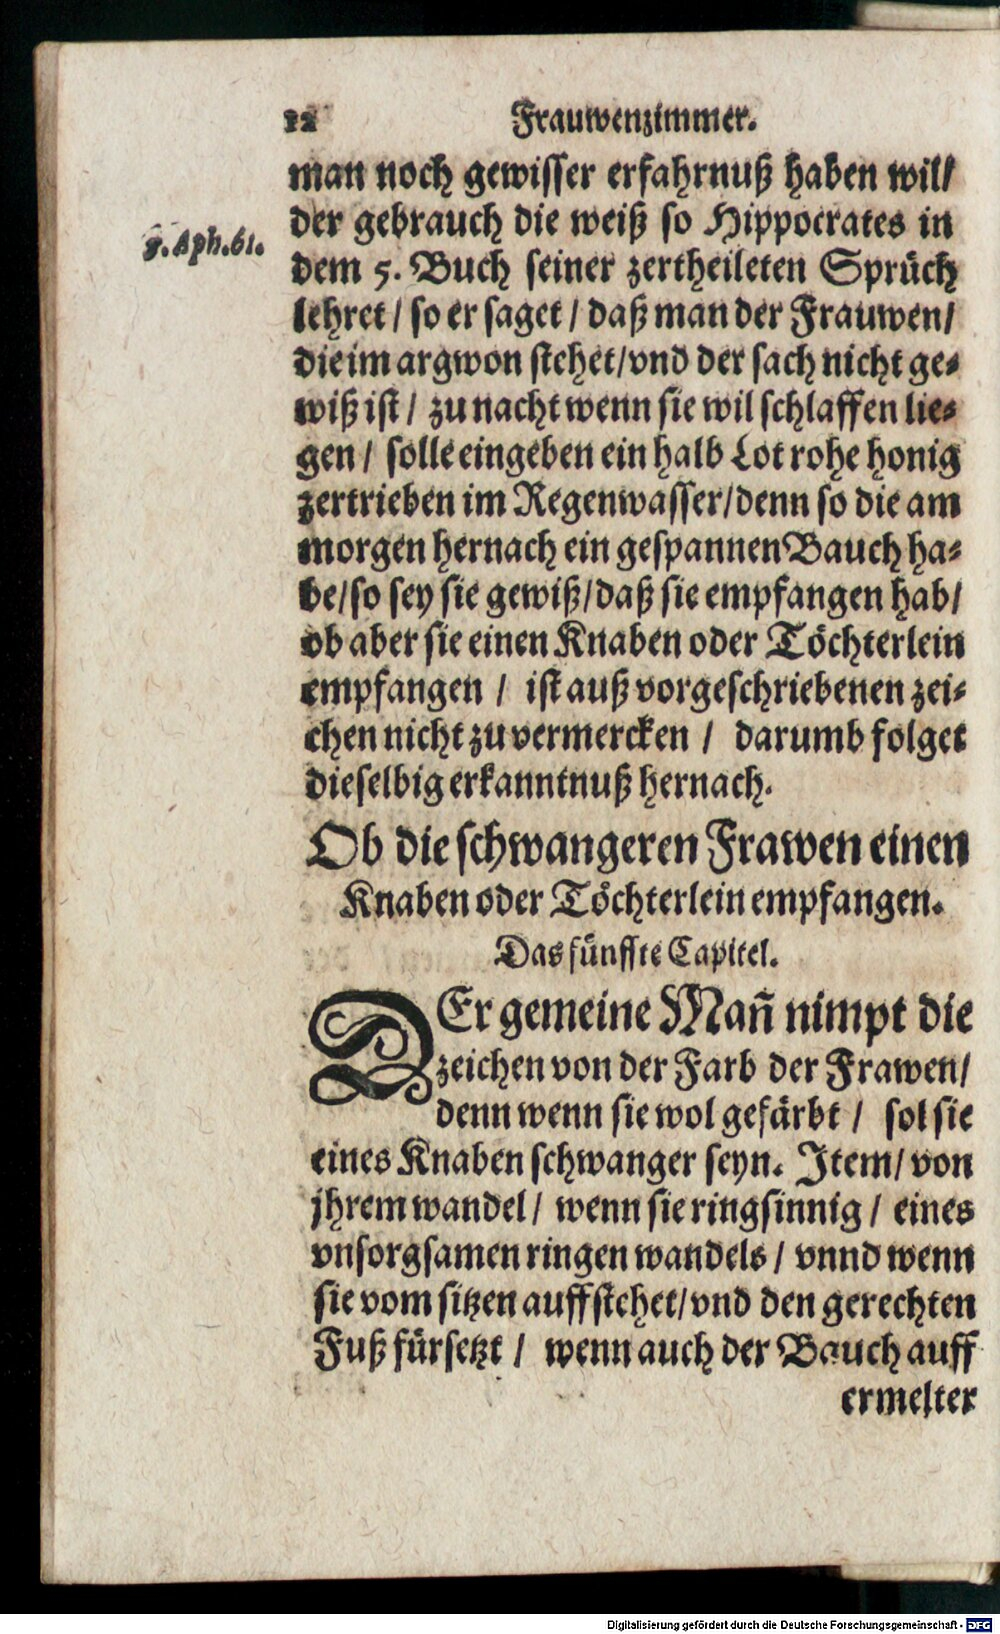 12 Frauwenzimmer.
man noch gewisser erfahrnuß haben wil/
der gebrauch die weiß so Hippocrates in
5. Aph. 61.
dem 5. Buch seiner zertheileten Sprüch
lehret / so er saget / daß man der Frauwen/
die im argwon stehet/vnd der sach nicht ge-
wiß ist / zu nacht wenn sie wil schlaffen lie-
gen / solle eingeben ein halb Lot rohe honig
zertrieben im Regenwasser/denn so die am
morgen hernach ein gespannen Bauch ha-
be/so sey sie gewiß/daß sie empfangen hab/
ob aber sie einen Knaben oder Töchterlein
empfangen / ist auß vorgeschriebenen zei-
chen nicht zu vermercken / darumb folget
dieselbig erkanntnuß hernach.
Ob die schwangeren Frawen einen
Knaben oder Töchterlein empfangen.
Das fünffte Capitel.
DEr gemeine Mañ nimpt die
zeichen von der Farb der Frawen/
denn wenn sie wol gefärbt / sol sie
eines Knaben schwanger seyn. Item/ von
jhrem wandel / wenn sie ringsinnig / eines
vnsorgsamen ringen wandels / vnnd wenn
sie vom sitzen auffstehet/vnd den gerechten
Fuß fürsetzt / wenn auch der Bauch auff
ermelter
Digitalisierung gefördert durch die Deutsche Forschungsgemeinschaft - DFG